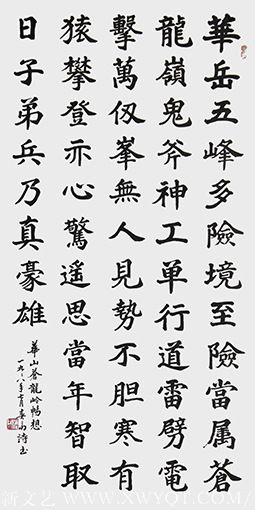 華岳五峰多險境至險當属蒼
龍嶺鬼斧神工单行道雷劈電
擊萬仭峯無人見勢不胆寒有
猿攀登亦心驚遥思當年智取
日子弟兵乃真豪雄
華山蒼龍岭畅想
新文艺 WWW.XWYQT.COM/